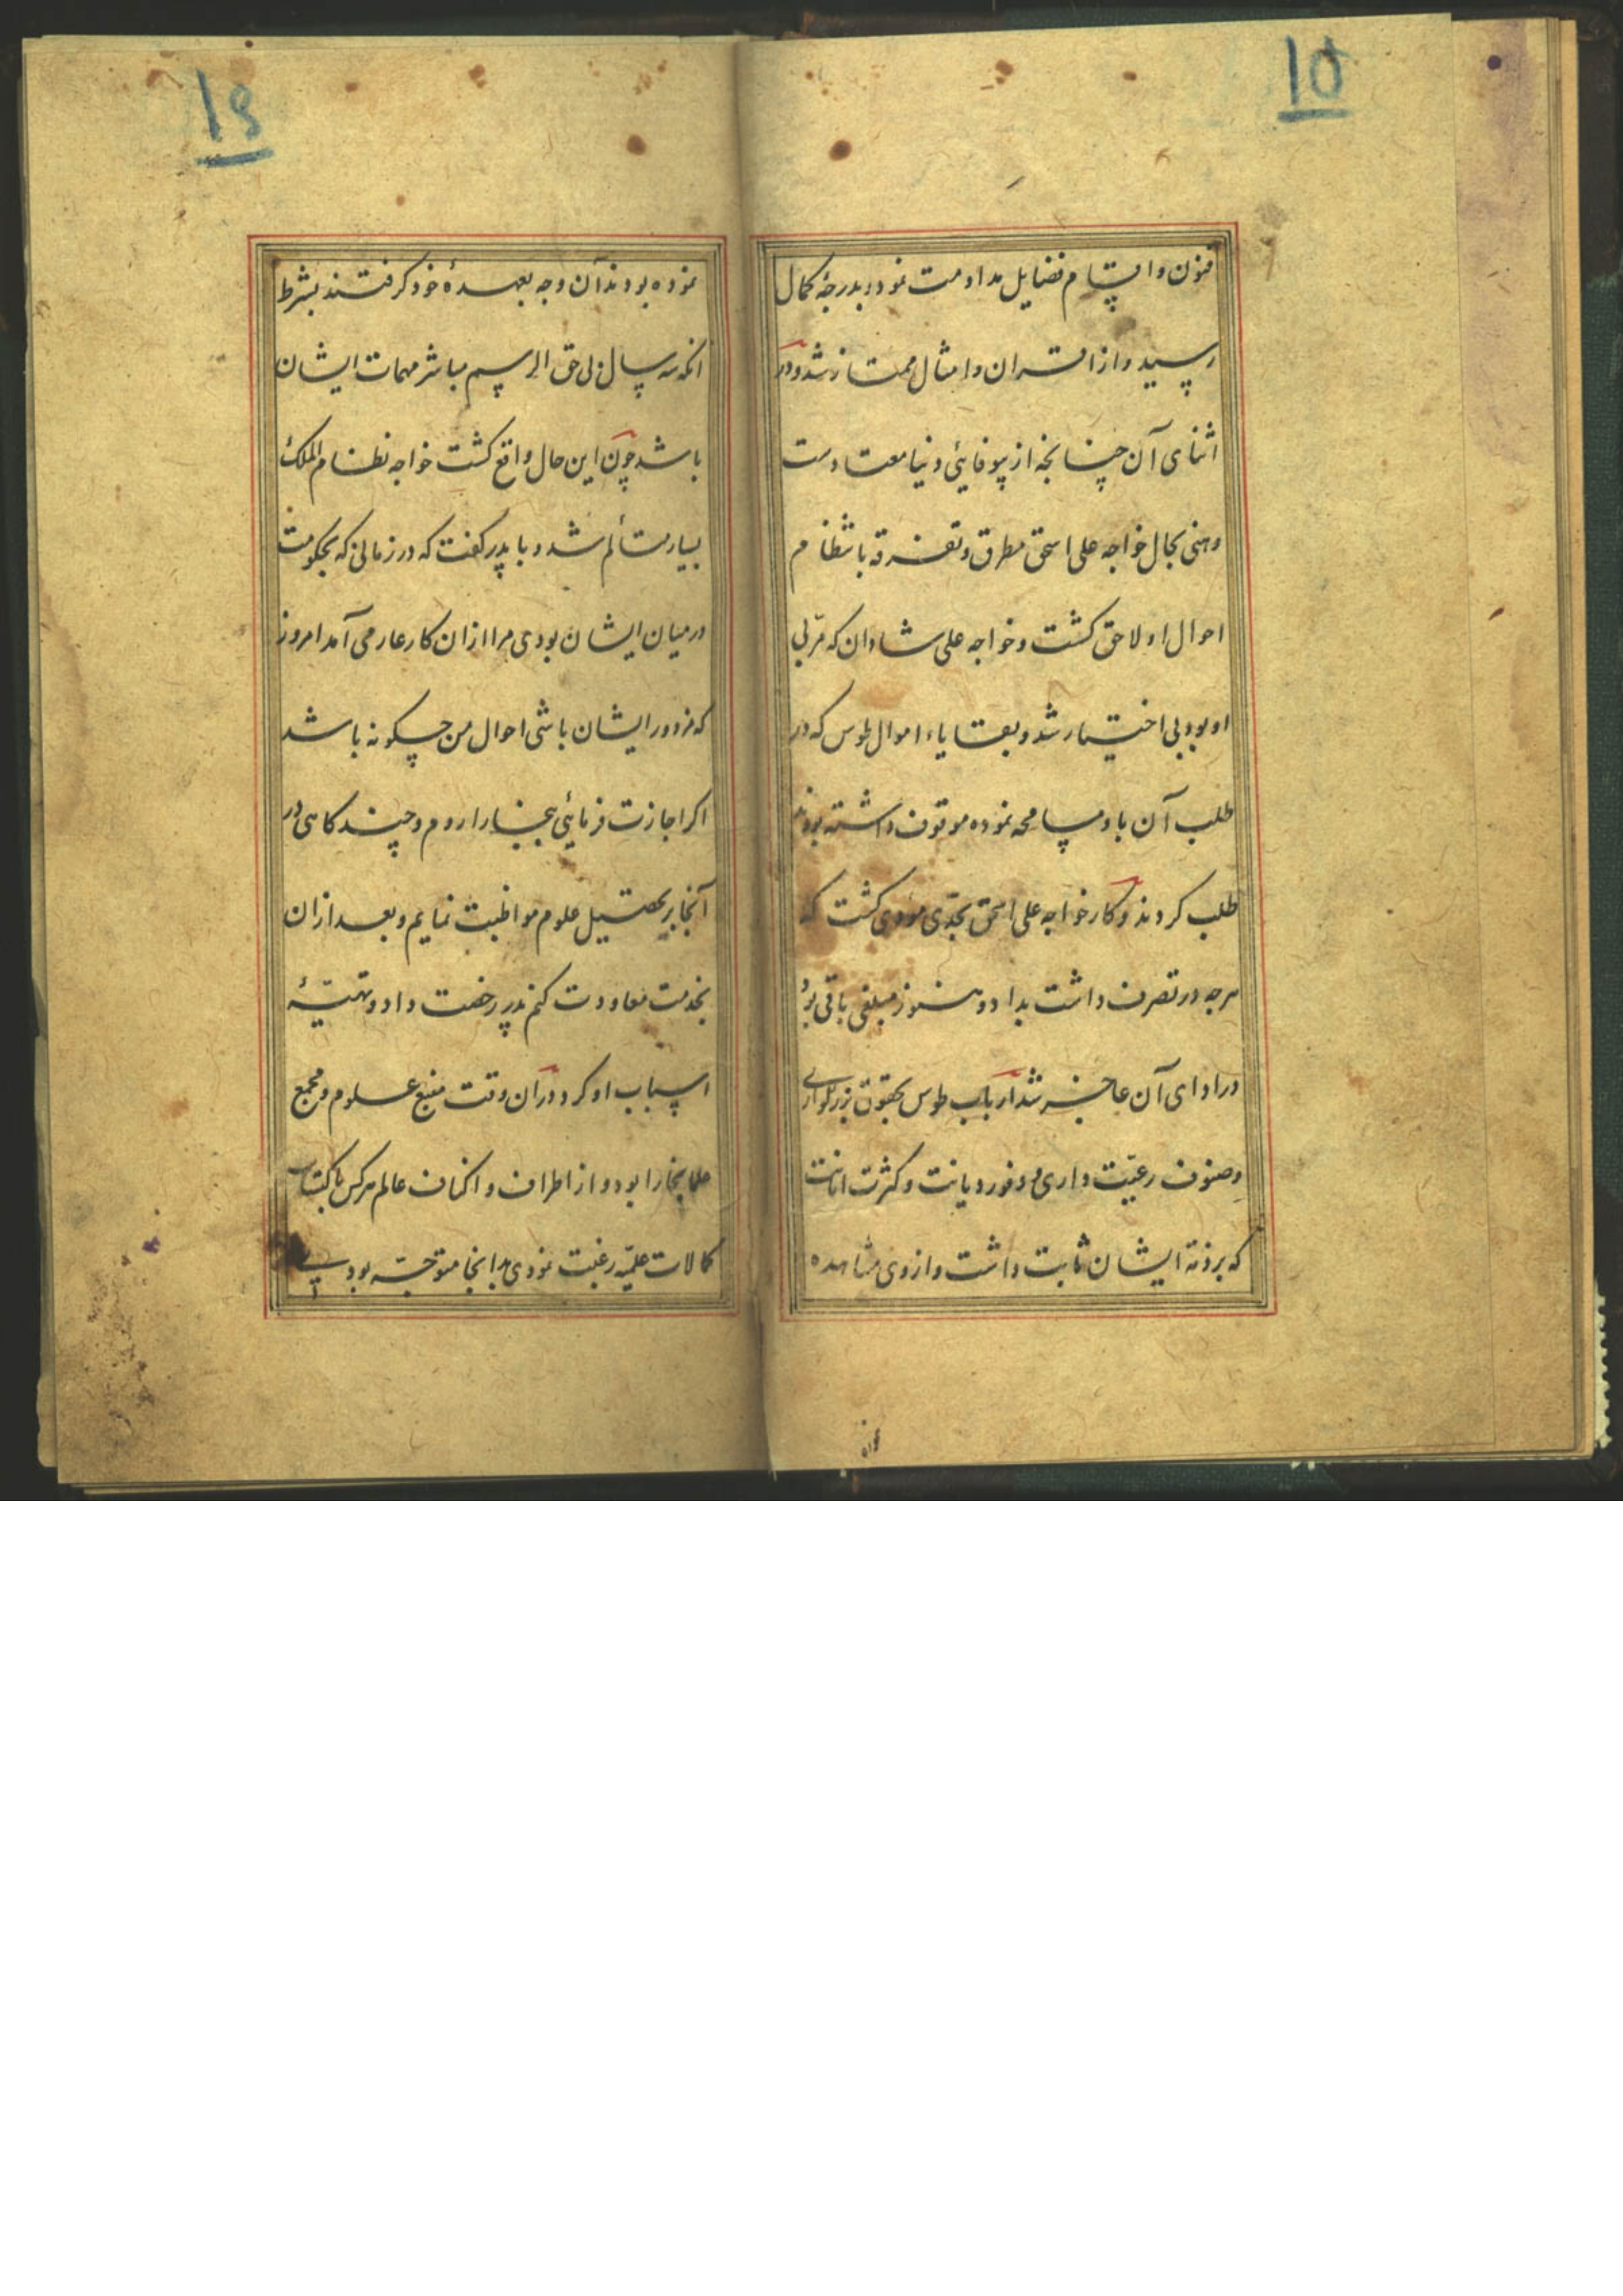 ۱۵
فنون و اقسام فضایل مداومت نمود بدرجهٔ کمال
رسید و از اقران و امثال ممتاز شد و در
اثنای آن چنانچه از بیوفائی دنیا معتادست
وهنی بحال خواجه علی اسحق مطرق و تفرقه بانتظام
احوال او لاحق کشت و خواجه علی شادان که مربی
او بود بی اختیار شد و بقایاء اموال طوس که در
طلب آن با او مسامحه نموده موقوف داشته بودند
طلب کردند و کار خواجه علی اسحق بحدّی مودی کشت که
هرچه در تصرف داشت بداد و هنوز مبلغی باقی بود
در ادای آن عاجز شد ارباب طوس بحقوق بزرکواری
و صنوف رعیّت داری و وفور دیانت و کثرت امانت
که بر ذمهٔ ایشان ثابت داشت و از وی مشاهده
نموده بودند آن وجه بعهدهٔ خود کرفتند بشرط
آنکه سه سال بی حق المرسم مباشر مهمات ایشان
باشد چون این حال واقع کشت خواجه نظام الملک
بسیار متألم شد و با پدر کفت که در زمانی که بحکومت
در میان ایشان بودی مرا از آن کار عار می آمد امروز
که مزدور ایشان باشی احوال من چکونه باشد
اکر اجازت فرمائی ببخارا روم و چند کاهی در
آنجا بر تحصیل علوم مواظبت نمایم و بعد از آن
بخدمت معاودت کنم پدر رخصت داد و تهیّهٔ
اسباب او کرد و در آن وقت منبع علوم و مجمع
علما بخارا بود و از اطراف و اکناف عالم هرکس باکتساب
کمالات علمیّه رغبت نمودی بدانجا متوجّه بود